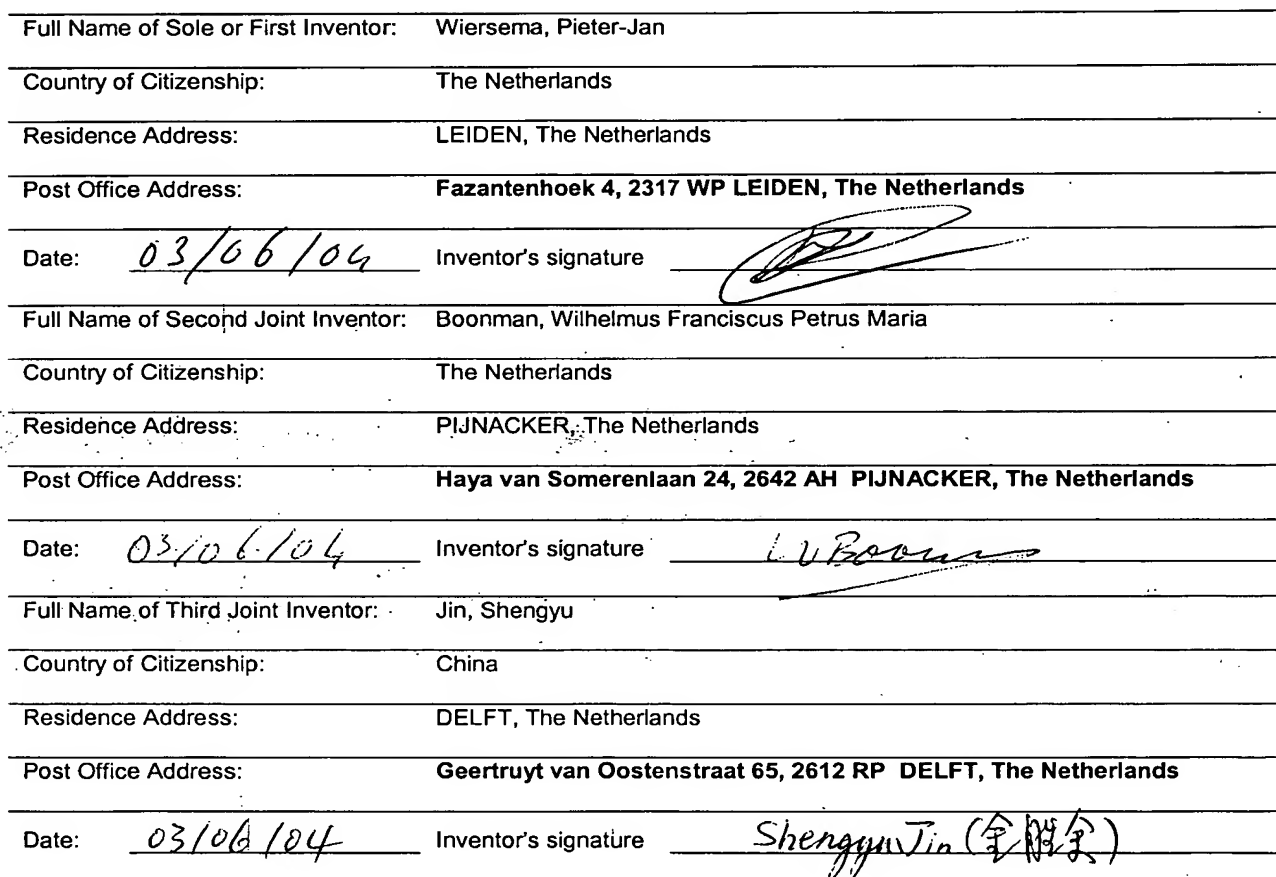 Full Name of Sole or First Inventor: Wiersema, Pieter-Jan
Country of Citizenship: The Netherlands
Residence Address: LEIDEN, The Netherlands
Post Office Address: Fazantenhoek 4, 2317 WP LEIDEN, The Netherlands
Date: 03/06/04 Inventor's signature
Full Name of Second Joint Inventor: Boonman, Wilhelmus Franciscus Petrus Maria
Country of Citizenship: The Netherlands
Residence Address: PIJNACKER, The Netherlands
Post Office Address: Haya van Somerenlaan 24, 2642 AH PIJNACKER, The Netherlands
Date: 03/06/04 Inventor's signature
Full Name of Third Joint Inventor: Jin, Shengyu
Country of Citizenship: China
Residence Address: DELFT, The Netherlands
Post Office Address: Geertruyt van Oostenstraat 65, 2612 RP DELFT, The Netherlands
Date: 03/06/04 Inventor's signature Shengyu Jin (金